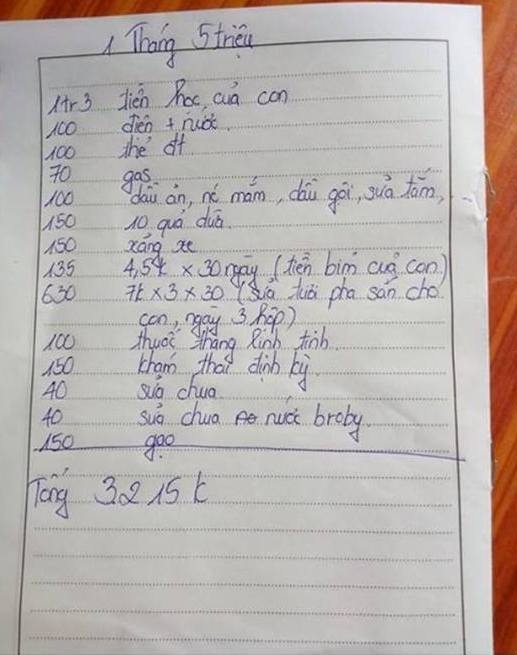 1 Tháng 5 triệu
1tr3 tiền học của con
100 điện + nước.
100 thẻ đt
70 gas
100 dầu ăn, nc mắm, dầu gội, sữa tắm, ...
150 10 quả dừa.
150 xăng xe
135 4,5k x 30 ngày (tiền bỉm của con)
630 7k x 3 x 30 (sữa tươi pha sẵn cho
con, ngày 3 hộp)
100 thuốc thang linh tinh.
150 khám thai định kỳ.
40 sữa chua.
40 sữa chua nước broby.
150 gạo
Tổng 3215k